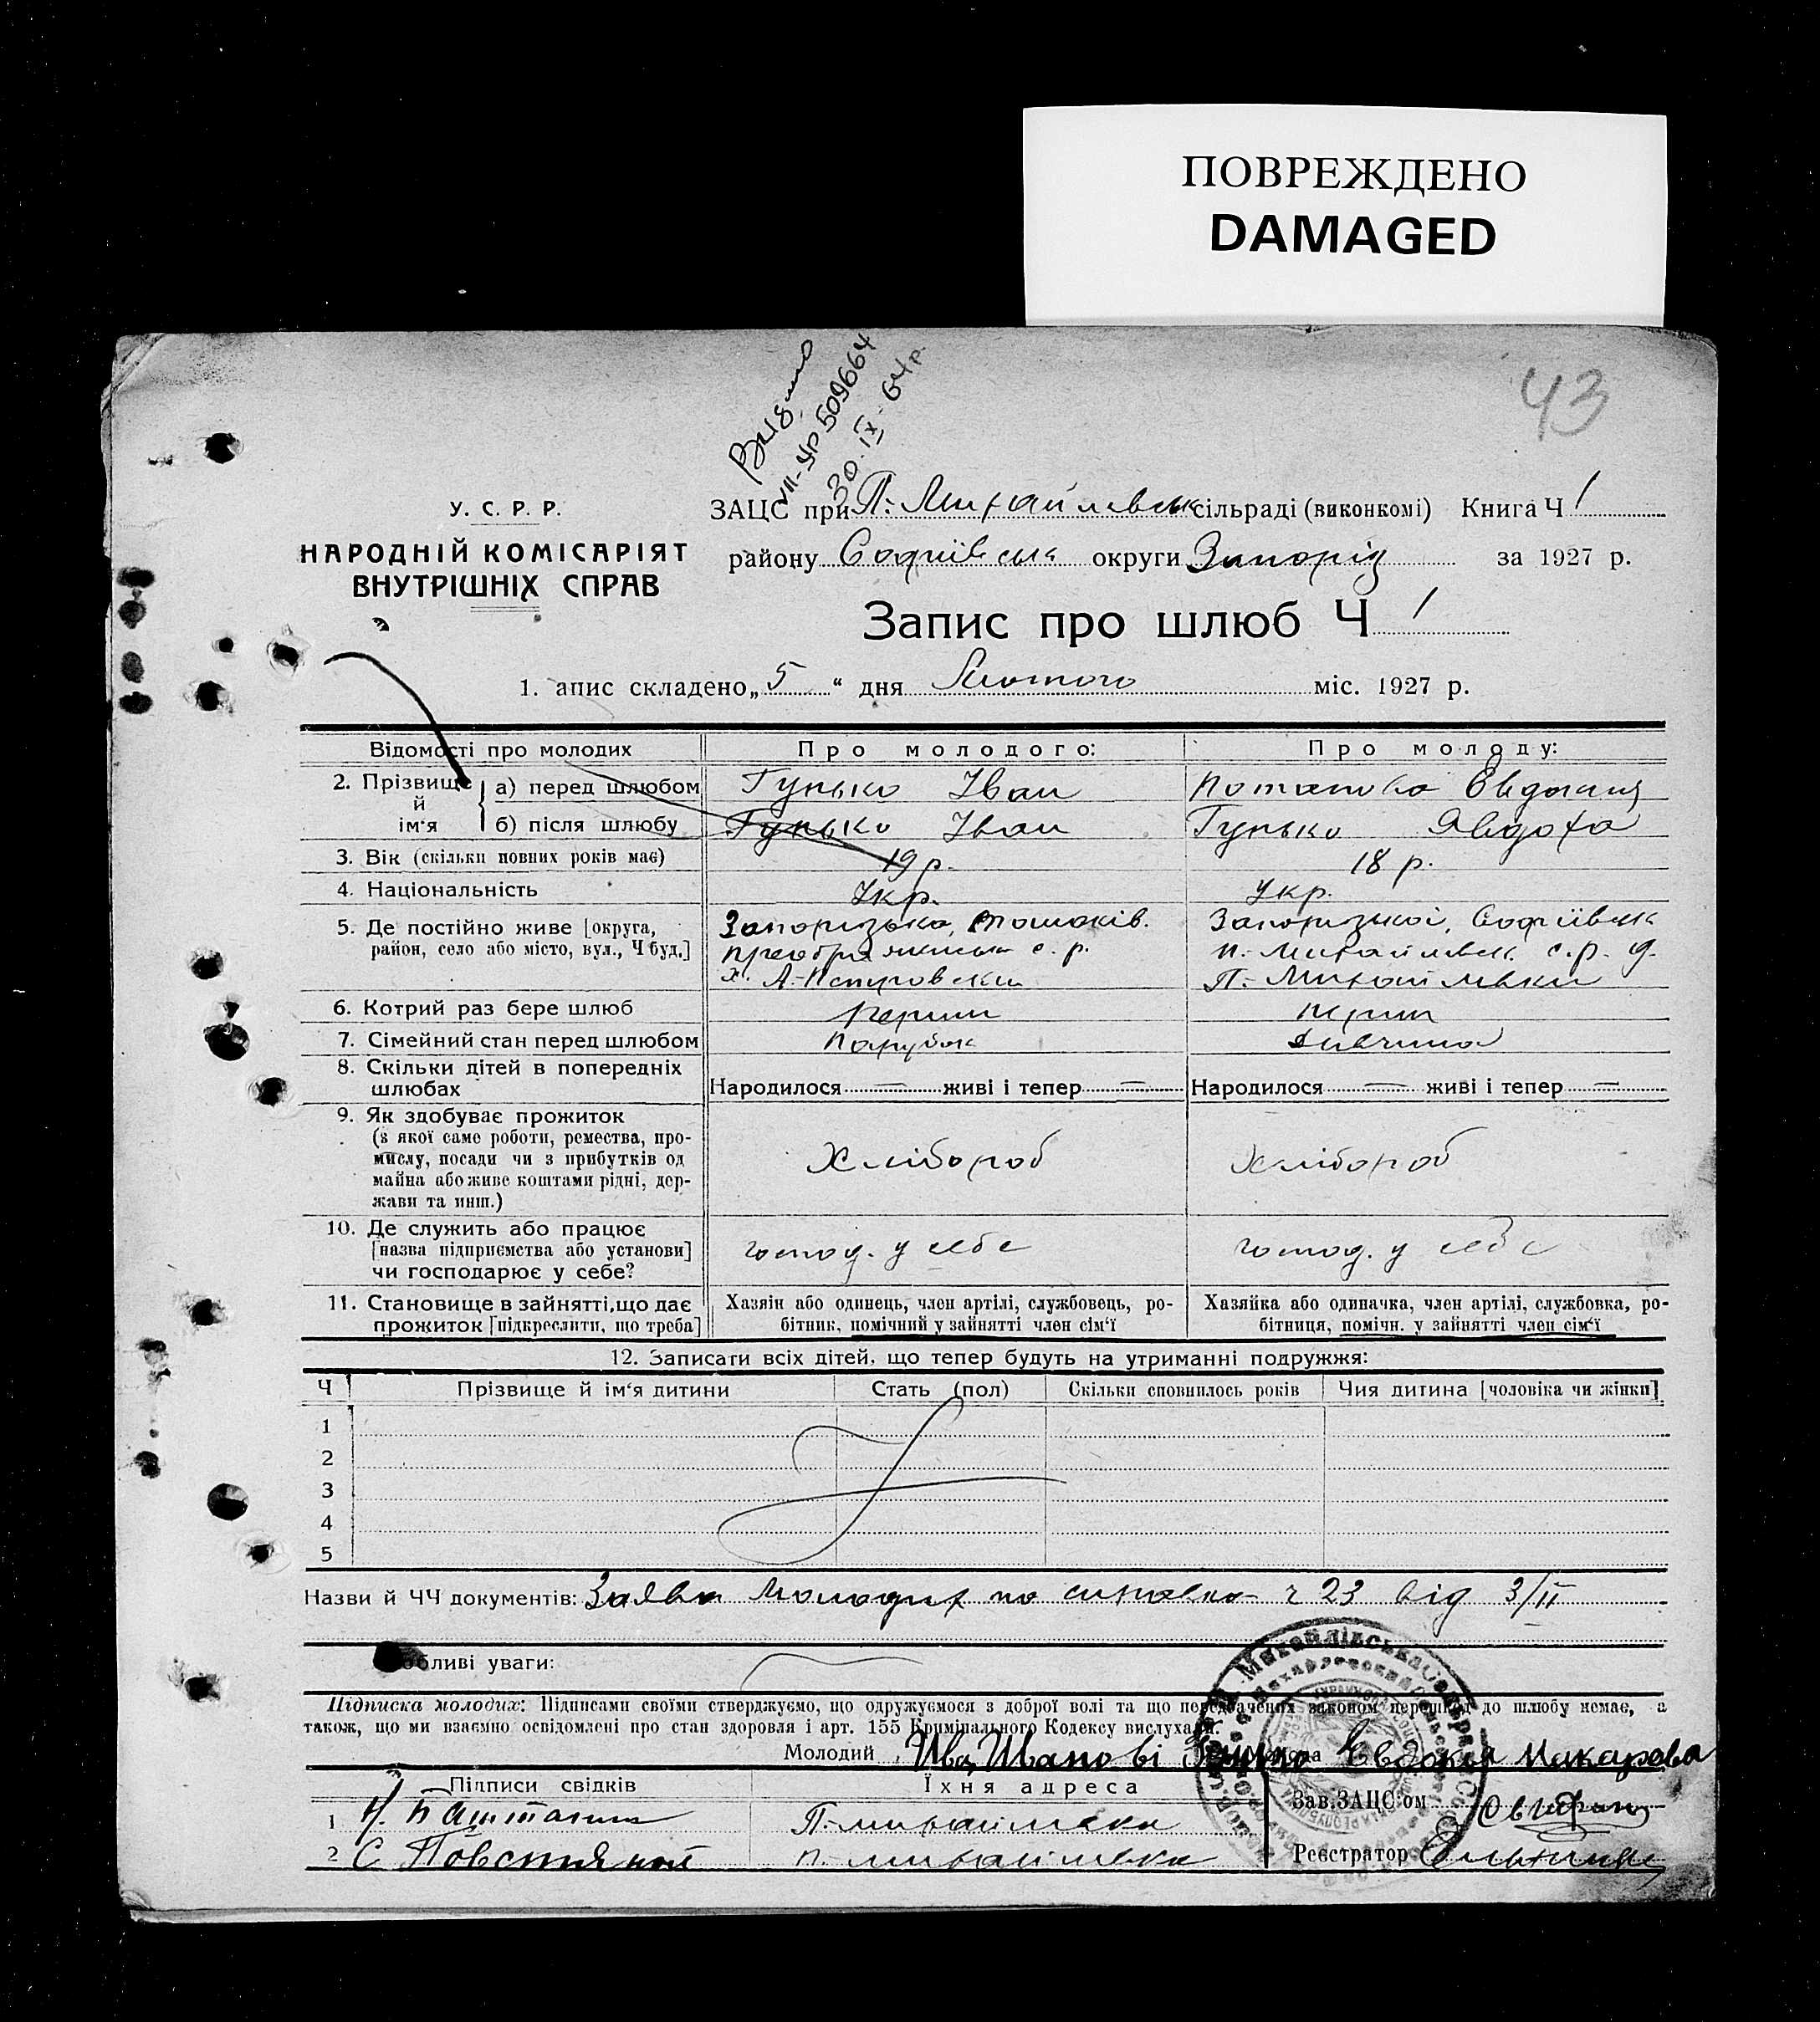 ПОВРЕЖДЕНО
DAMAGED
43
Видано
VII-УР 509664
30.IX 64 р.
У. С. Р. Р.
НАРОДНІЙ КОМІСАРІЯТ
ВНУТРІШНІХ СПРАВ
ЗАЦС при П.-Михайлівськ сільраді (виконкомі) Книга Ч 1
району Софіївськ округи Запоріз за 1927 р.
Запис про шлюб Ч 1
1. апис складено „5“ дня Лютого міс. 1927 р.
Відомості про молодих Про молодого: Про молоду:
2. Прізвище й ім'я
а) перед шлюбом Гунько Іван Потапова Евдокия
б) після шлюбу Гунько Іван Гунько Явдоха
3. Вік (скільки повних років має) 19 р. 18 р.
4. Національність Укр. Укр.
5. Де постійно живе [округа, Запорізька, Томаків. Запорізької, Софіївськ
район, село або місто, вул., Ч буд.] с. р. П.-Михайлівськ. с.р.
х. А-Петровский П.-Михайлівки
6. Котрий раз бере шлюб перший перший
7. Сімейний стан перед шлюбом Парубок Дівчина
8. Скільки дітей в попередніх
шлюбах Народилося — живі і тепер — Народилося — живі і тепер —
9. Як здобуває прожиток
(з якої саме роботи, ремества, про-
мислу, посади чи з прибутків од Хлібороб Хлібороб
майна або живе коштами рідні, дер-
жави та инш.)
10. Де служить або працює
[назва підприємства або установи] господ. у себе господ. у себе
чи господарює у себе?
11. Становище в зайнятті, що дає Хазяін або одинець, член артілі, службовець, ро- Хазяйка або одиначка, член артілі, службовка, ро-
прожиток [підкреслити, що треба] бітник, помічний у зайнятті член сім'ї бітниця, помічн. у зайнятті член сім'ї
12. Записати всіх дітей, що тепер будуть на утриманні подружжя:
Ч Прізвище й ім'я дитини Стать (пол) Скільки сповнилось років Чия дитина [чоловіка чи жінки]
1
2
3
4
5
Назви й ЧЧ документів: Заява молодих ч 23 від 3/II
бливі уваги:
Підписка молодих: Підписами своїми стверджуємо, що одружуємося з доброї волі та що передбачених законом перешкод до шлюбу немає, а
також, що ми взаємно освідомлені про стан здоровля і арт. 155 Кримінального Кодексу вислухали.
Молодий Молода Евдокія Макарова
Підписи свідків Їхня адреса Зав. ЗАЦС'ом
1 Н. Баштанник П.-Михайлівка
2 С. Повстяной П.-Михайлівка Реєстратор